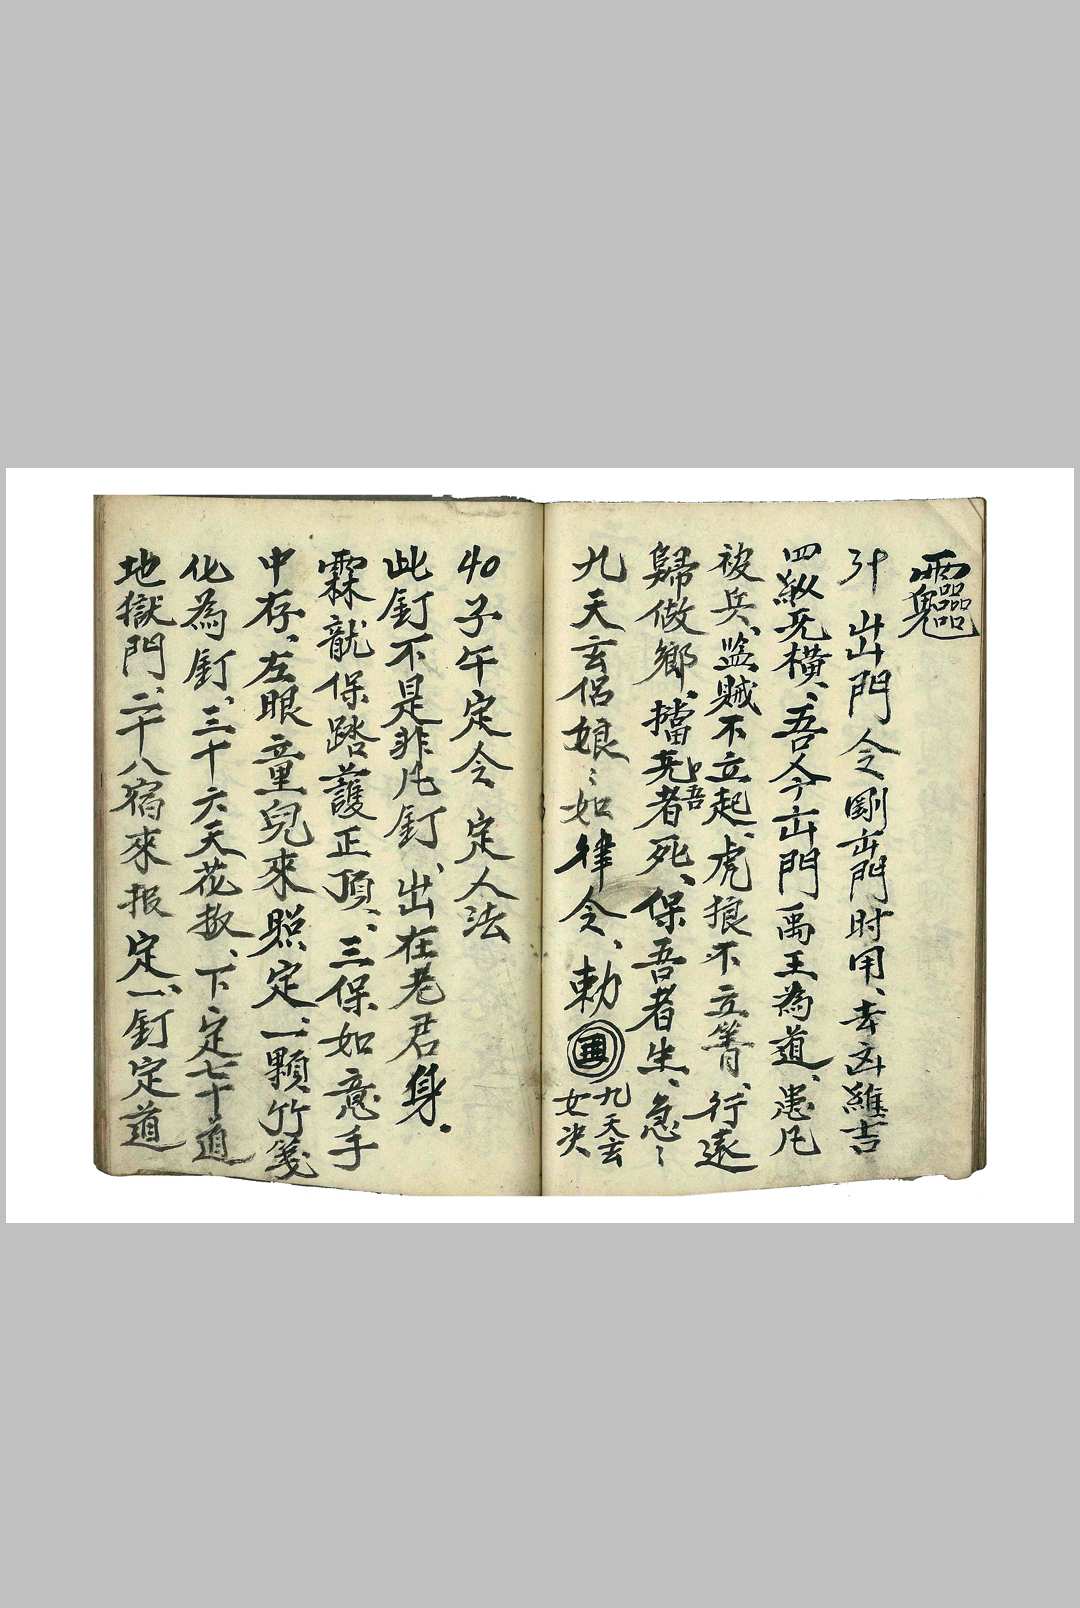 出門令剛出門时用、去凶維吉
四縱五橫、吾今出門禹王為道、蚩尤
被兵、盜賊不立起、虎狼不立箐、行遠
歸做鄉、擋吾者死、保吾者生、急ミ
九天玄侶娘ミ如律令、勅
九天玄
女决
40 子午定令 定人法
此釘不是非凡釘、出在老君身.
霖龍保踏護正頂、三保如意手
中存、左眼童兒來照定、一顆竹箋
化為釘、三十六天花教、下定七十道
地獄門、二十八宿來报定、一釘定道